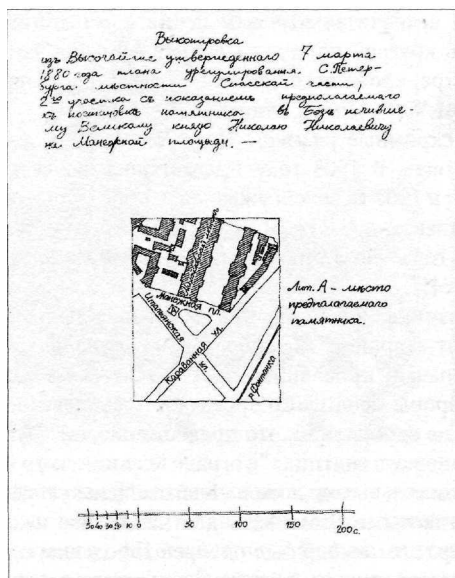 Выкопировка
изъ Высочайше утвержденного 7 марта
1880 года плана урегулирования С. Петер-
бурга местности Спасской части,
2го участка съ показаниемъ предполагаемаго
къ постановке памятника въ Бозе почивше-
му Великому князю Николаю Николаевичу
на Манежной площади. —
Манежная пл.
Итальянская
ул.
Караванная
ул.
р. Фонтанка
Лит. А – место
предполагаемого
памятника.
50 40 30 20 10 0 50 100 150 200 с.